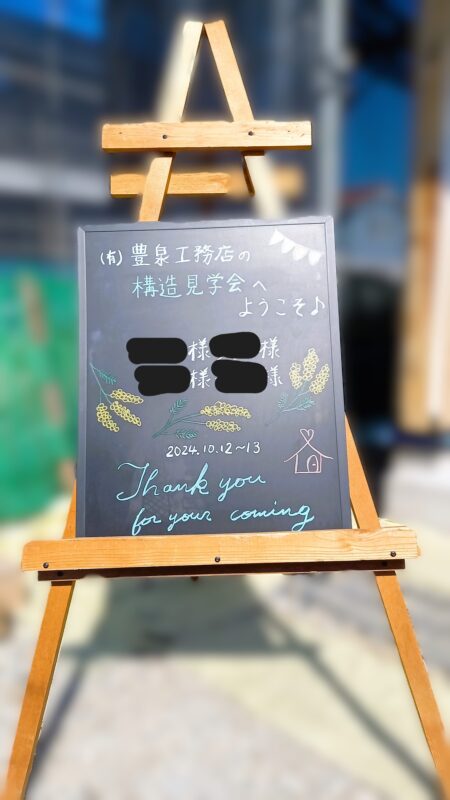 (有)豊泉工務店の
構造見学会へ
ようこそ♪
様 様
様 様
2024.10.12~13
Thank you
for your coming